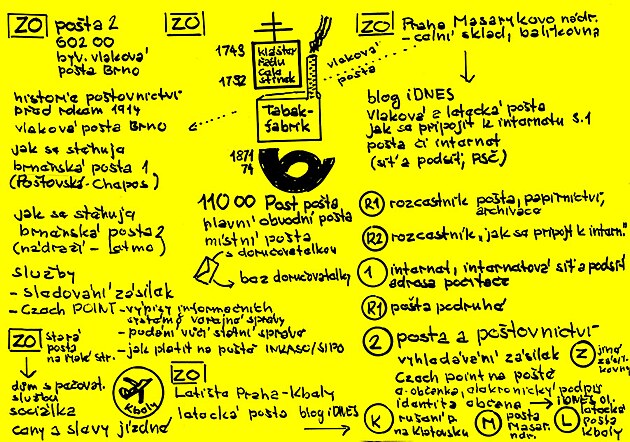 ZO pošta 2
602 00
býv. vlaková
pošta Brno
historie poštovnictví
před rokem 1914
vlaková pošta Brno
jak se stěhuje
brněnská pošta 1
(Poštovská - Chepos)
jak se stěhuje
brněnská pošta 2
(nádraží - Letmo)
služby
- sledování zásilek
- Czech POINT - výpisy informačních
systémů veřejné správy
- podání vůči státní správě
- jak platit na poště INKASO/SIPO
ZO stará
pošta
na Malé Str.
dům s pečovat.
službou
sociálka
ceny a slevy jízdné
Kbely
ZO
Letiště Praha-Kbely
letecká pošta blog iDNES
ZO
1743
1782
klášter
řádu
Tabák-
fabrik
1871
74
vlaková
pošta
110 00 Post pošta
hlavní obvodní pošta
místní pošta
s doručovatelkou
bez doručovatelky
ZO Praha Masarykovo nádr.
- celní sklad, balíkovna
blog iDNES
vlaková a letecká pošta
jak se připojit k internetu s.1
pošta či internet
(síť a podsíť, PSČ)
R1 rozcestník pošta, papírnictví,
archivace
R2 rozcestník „jak se připojit k intern."
1 internet, internetová síť a podsíť
adresa počítače
R1 pošta podruhé
2 pošta a poštovnictví
vyhledávání zásilek
Z jiné
zásil-
kovny
Czech point na poště
e-občanka, elektronický podpis
identita občana
iDNES 01.
K rušení p.
na Klatovsku
M pošta
Masar.
ndr.
L letecká
pošta
Kbely